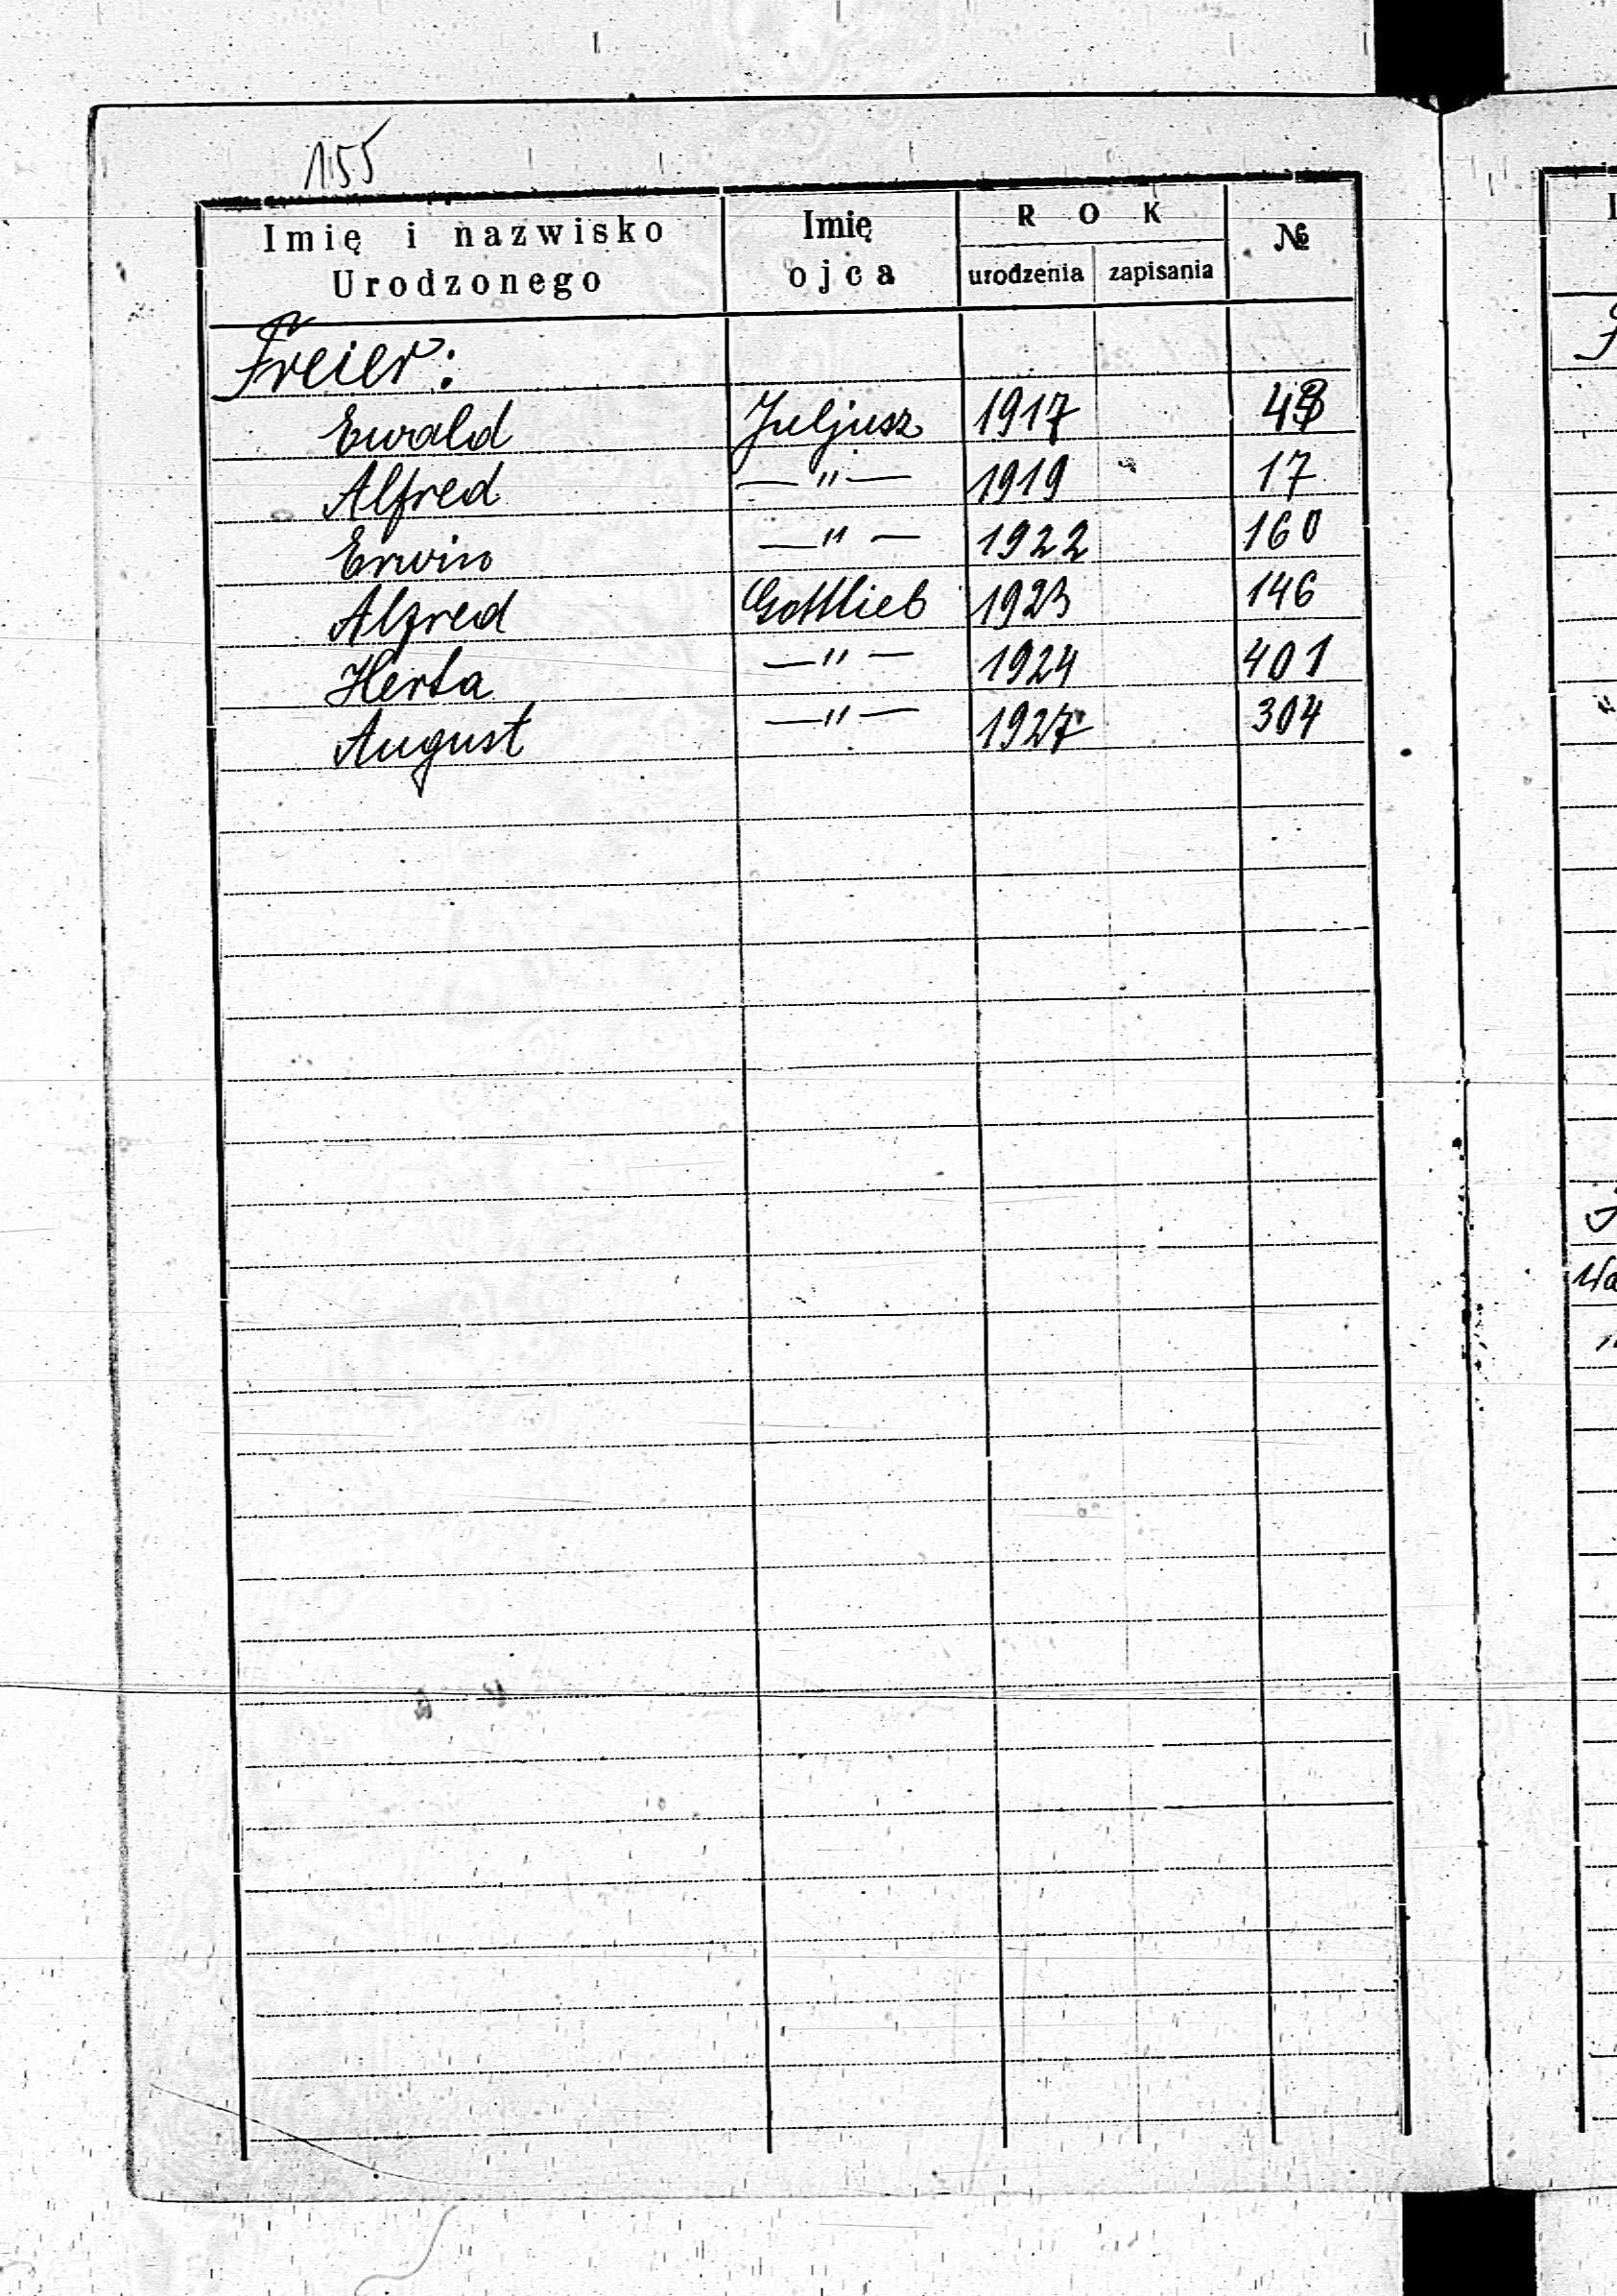 155
Imię i nazwisko Urodzonego Imię ojca ROK urodzenia zapisania №
Freier:
Ewald Juljusz 1917 48
Alfred —"— 1919 17
Erwin —"— 1922 160
Alfred Gottlieb 1923 146
Herta —"— 1924 401
August —"— 1927 304